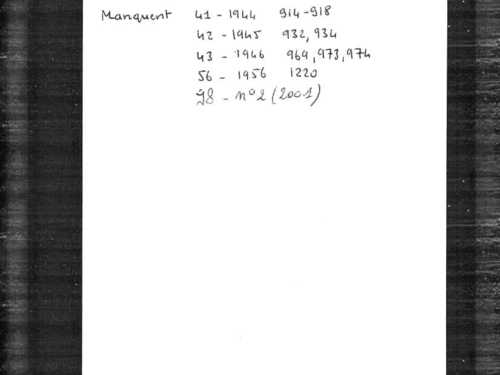 Manquent 41 - 1944 914-918
42 - 1945 932, 934
43 - 1946 969, 973, 974
56 - 1956 1220
98 - n°2 (2001)